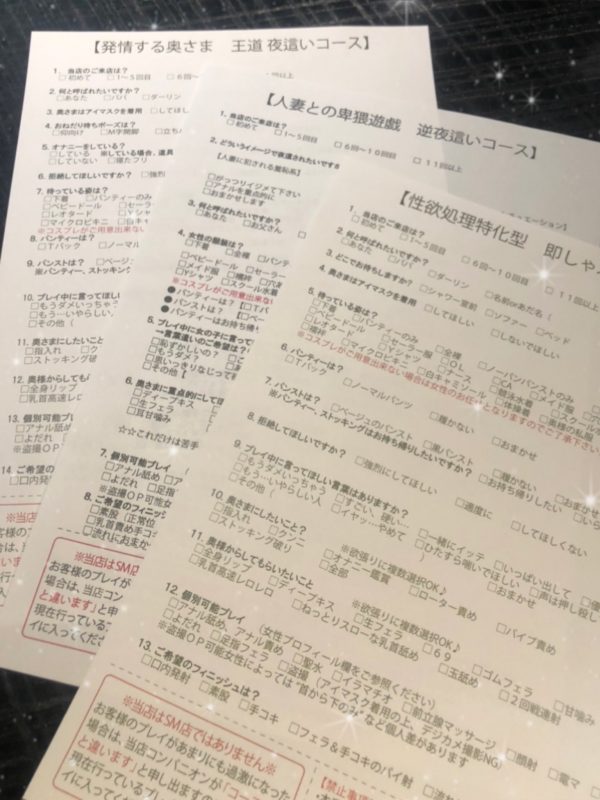 【発情する奥さま 王道 夜這いコース】
1. 当店のご来店は?
□初めて □1~5回目 □6回~
2. 何と呼ばれたいですか?
□あなた □パパ □ダーリン
3. 奥さまはアイマスクを着用 □してほし
4. おねだり待ちポーズは?
□仰向け □M字開脚 □立ち
5. オナニーをしている?
□している ※している場合、道具
□していない □寝たフリ
6. 拒絶してほしいですか? □強烈
7. 待っている姿は?
□下着 □パンティーのみ
□ベビードール □セーラー
□レオタード □Yシャ
□マイクロビキニ □白キャ
※コスプレがご用意出来ない
8. パンティーは?
□Tバック □ノーマル
9. パンストは? □ベージュ
※パンティー、ストッキン
10. プレイ中に言ってほし
□もうダメいっちゃう
□もう…いやらしい
□その他(
11. 奥さまにしたいこと
□指入れ □ク
□ストッキング破
12. 奥様からしても
□全身リップ
□乳首高速
13. 個別可能プレイ
□アナル舐め
□よだれ
※盗撮OP可能
14. ご希望の
□口内発射
※当店はSM店
お客様のプレイが
場合は、当店コン
と違います」と申
現在行っているプ
イに入ってくださ
【人妻との卑猥遊戯 逆夜這いコース】
1. 当店のご来店は?
□初めて □1~5回目 □6回~10回目 □11回以上
2. どういうシチュエーションで夜這されたいですか
【人妻に犯される羞恥系】
□がっつりイジメて下さい
□アナルを重点的に
□おまかせします
3. 何と呼ばれたいですか?
□あなた □お父さん
4. 女性の服装は?
□下着 □全裸 □パンテ
□ベビードール □セーラー
□メイド服 □裸枠 □穴
□Yシャツ □スクール水着
※コスプレがご用意出来な
●パンティーは?【□Tバ
●パンストは? 【□ベー
●パンティーはお持ち帰り
5. プレイ中に女の子に言って
→言葉遣いのご希望は?
□恥ずかしいの?
□もうダメ?
□思いっきりなじって
□その他(
6. 奥さまに重点的にして
□ディープキス
□生フェラ
□耳甘噛み
☆☆これだけは苦手
7. 個別可能プレイ
□アナル舐め
□よだれ □足指
※盗撮OP可能女
8. ご希望のフィニッ
□素股(正常位
□乳首責め手コキ
□流れにおまか
※当店はSM店
お客様のプレイ
場合は、当店コ
と違います」と
現在行っている
イに入ってくだ
【性欲処理特化型 即しゃ
1. 当店のご来店は?
□初めて □1~5回目 □6回~10回目 □11回以上
2. 何と呼ばれたいですか?
□あなた □パパ □ダーリン □名前orあだ名(
3. どこでお待ちしますか? □シャワー室前 □ソファー □ベッド
4. 奥さまはアイマスクを着用 □してほしい □しないでほしい
5. 待っている姿は?
□下着 □パンティーのみ □全裸 □ノーパンパンストのみ
□ベビードール □セーラー服 □OL □CA □メイド服
□レオタード □Yシャツ □ナース □競泳水着
□裸枠 □マイクロビキニ □白キャミソール □体操着 □奥様の私服
※コスプレがご用意出来ない場合は女性のお任せとなりますのでご了承下さい
6. パンティーは?
□Tバック □ノーマルパンツ □履かない □おまかせ
7. パンストは? □ベージュのパンスト □黒パンスト □履かない □おまかせ
※パンティー、ストッキングはお持ち帰りしたいですか? □お持ち帰りしたい □いら
8. 拒絶してほしいですか? □強烈にしてほしい □適度に □してほしくない
9. プレイ中に言ってほしい言葉はありますか?
□もうダメいっちゃう □すごい、硬い… □一緒にイッテ □いっぱい出して
□もう…いやらしい人 □イヤッ…やめて □ひたすら喘いでほしい □声は押し殺し
□その他( )□おまかせ
10. 奥さまにしたいこと? ※欲張りに複数選択OK♪
□指入れ □クンニ □オナニー鑑賞 □ローター責め □バイブ責め
□ストッキング破り □全部
11. 奥様からしてもらいたいこと ※欲張りに複数選択OK♪
□全身リップ □ディープキス □生フェラ □69 □ゴムフェラ □甘噛み
□乳首高速レロレロ □ねっとりスローな乳首舐め □玉舐め □2回戦連射
12. 個別可能プレイ (女性プロフィール欄をご参照ください)
□アナル舐め、アナル責め □聖水 □イラマチオ □前立腺マッサージ □顔射
□よだれ □足指フェラ □盗撮(アイマスク着用の上、デジカメ撮影NG) □電マ
※盗撮OP可能女性によっては"首から下のみ"など個人差があります
13. ご希望のフィニッシュは?
□口内発射 □素股 □手コキ □フェラ&手コキのパイ射 □流れ
※当店はSM店ではありません※
お客様のプレイがあまりにも過激になった
場合は、当店コンパニオンが「コー
と違います」と申し出ますの
現在行っているプレイ
イに入ってくださ
【禁止事項